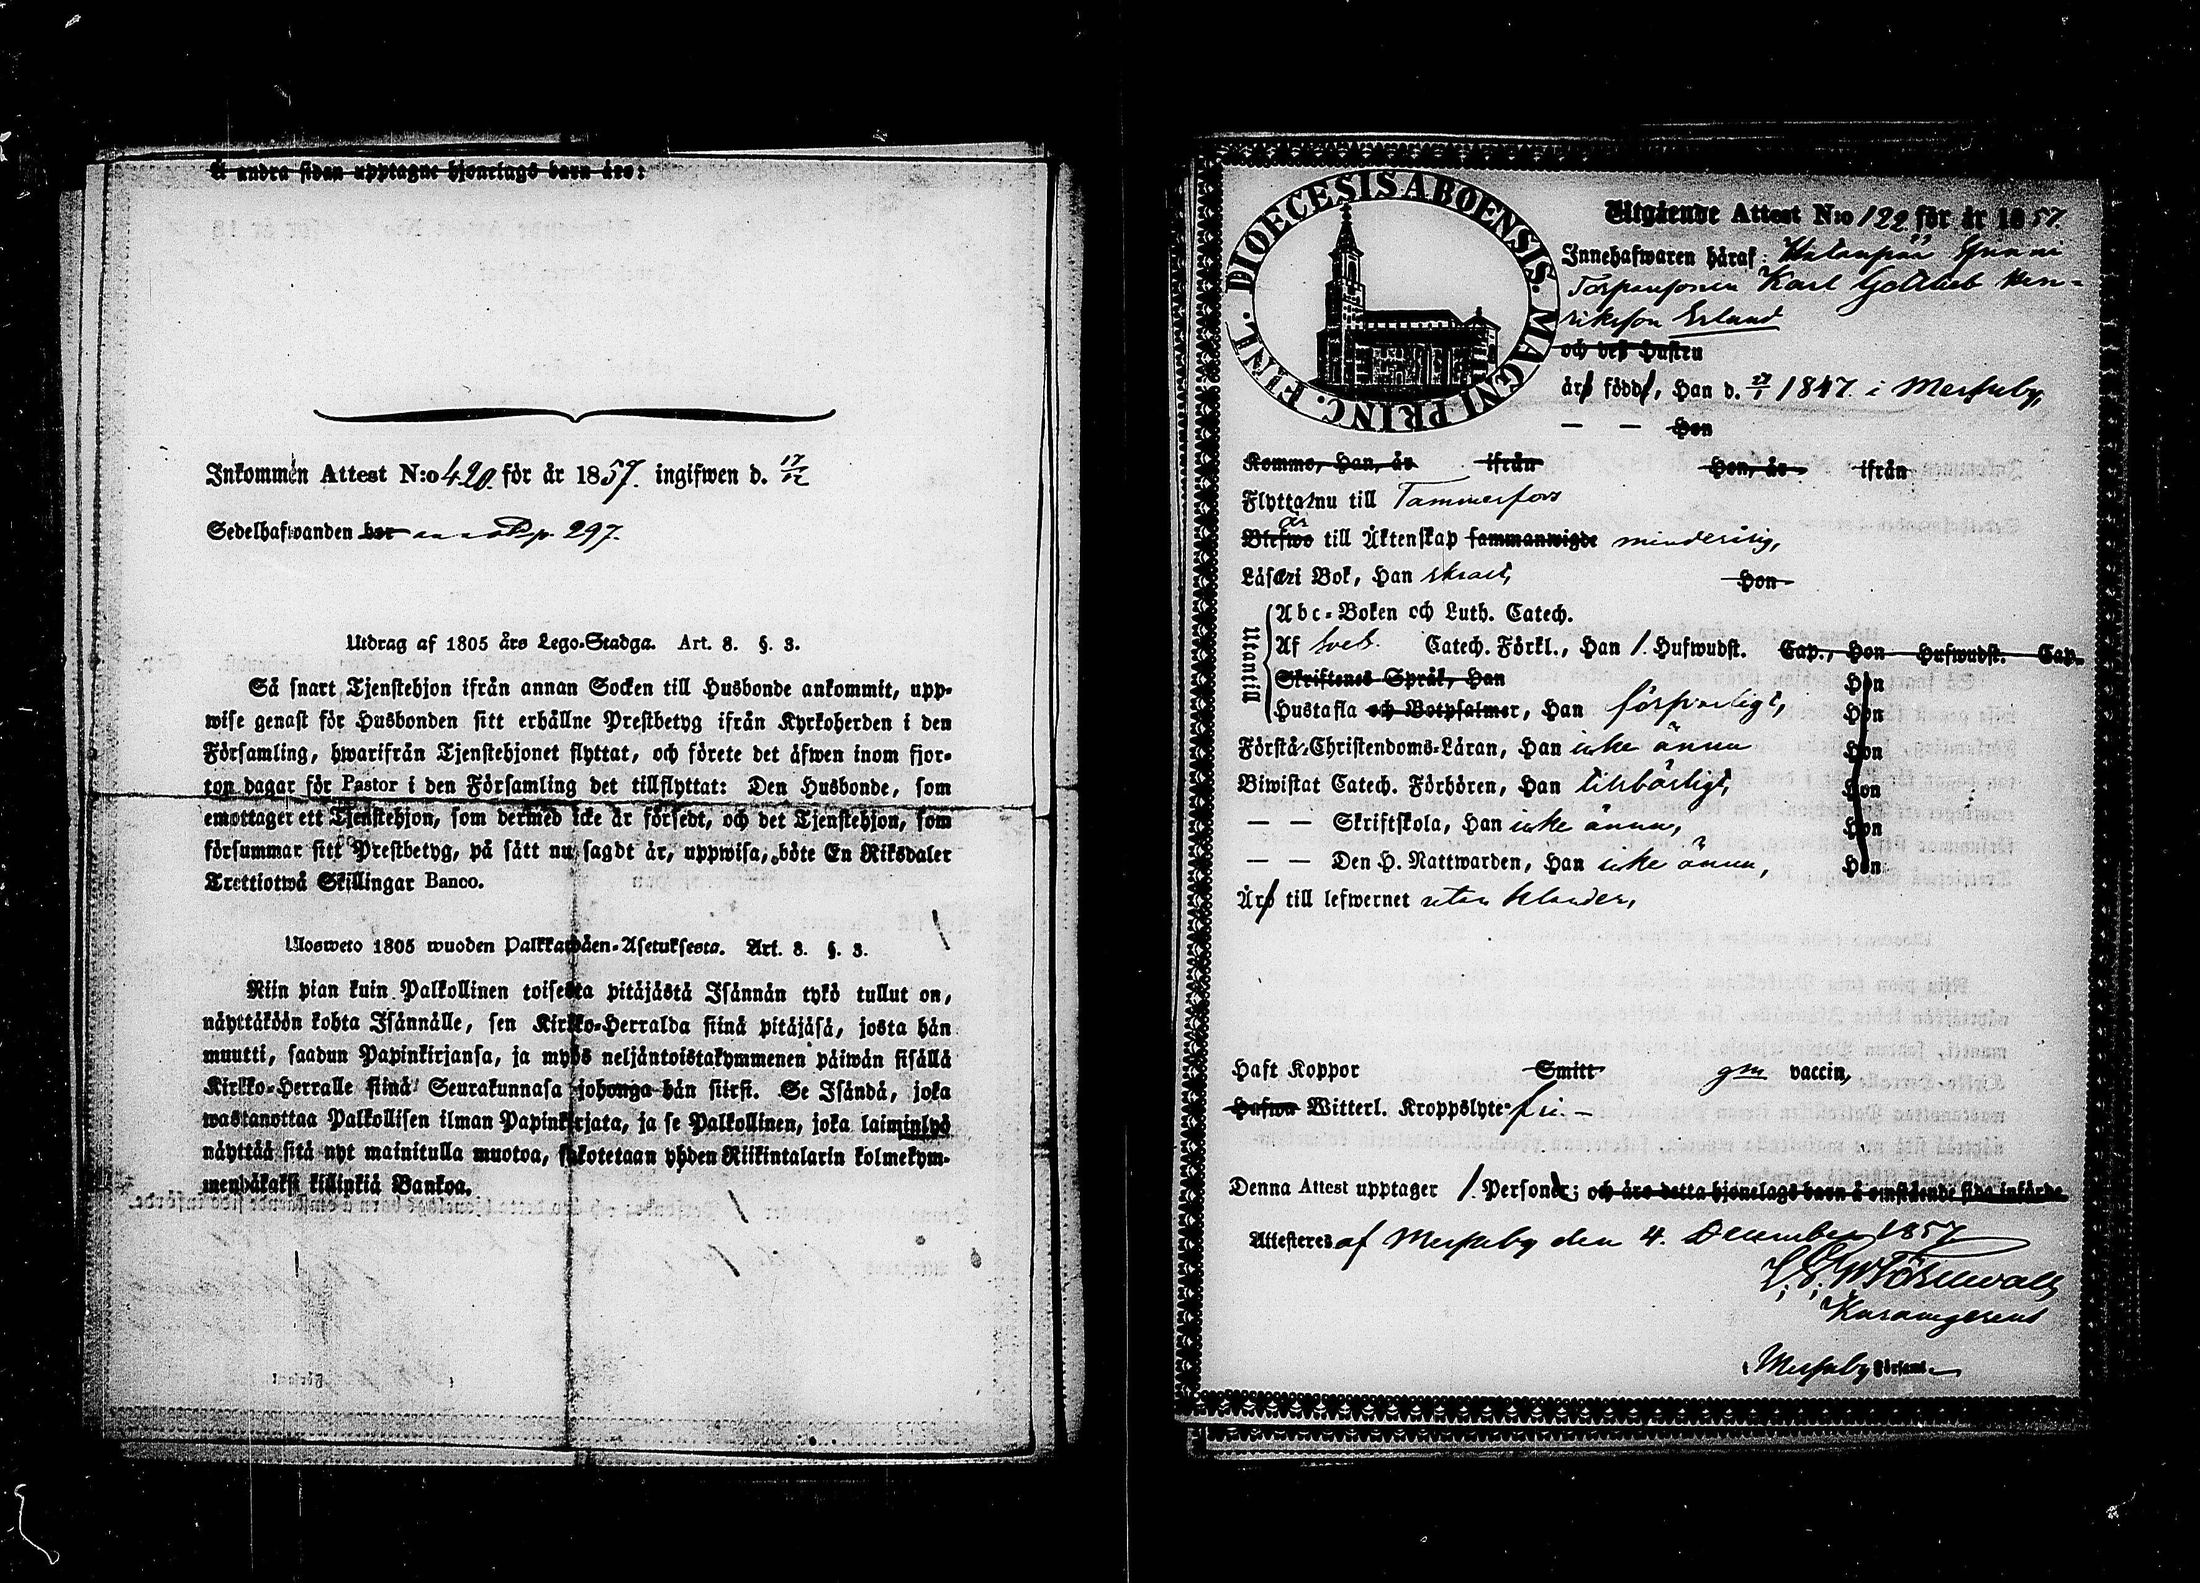 Å andra sidan upptagne hjonelags barn äro:
Inkommen Attest N:o 420. för år 1857. ingifwen d. 17/12
Sedelhafwanden bor p. 297.
Utdrag af 1805 års Lego-Stadga. Art. 8. §. 3.
Så snart Tjenstehjon ifrån annan Socken till Husbonde ankommit, upp-
wise genast för Husbonden sitt erhållne Prestbetyg ifrån Kyrkoherden i den
Församling, hwarifrån Tjenstehjonet flyttat, och förete det äfwen inom fjor-
ton dagar för Pastor i den Församling det tillflyttat: Den Husbonde, som
emottager ett Tjenstehjon, som dermed icke är försedt, och det Tjenstehjon, som
försummar sitt Prestbetyg, på sätt nu sagdt är, uppwisa, böte En Riksdaler
Trettiotwå Skillingar Banco.
Ulosweto 1805 wuoden Palkkawäen-Asetuksesta. Art. 8. §. 3.
Niin pian kuin Palkollinen toisesta pitäjästä Isännän tykö tullut on,
näyttäköön kohta Isännälle, sen Kirkko-Herralda siinä pitäjäsä, josta hän
muutti, saadun Papinkirjansa, ja myös neljäntoistakymmenen päiwän sisällä
Kirkko-Herralle siinä Seurakunnasa johonga hän siirsi. Se Isändä, joka
wastanottaa Palkollisen ilman Papinkirjata, ja se Palkollinen, joka laiminlyö
näyttää sitä nyt mainitulla muotoa, sakotetaan yhden Riikintalarin kolmekym-
mendäkaksi killinkiä Bankoa.
DIOECESIS ABOENSIS. MAGNI PRINC. FINL.
Utgående Attest N:o 122 för år 1857.
Innehafwaren häraf:
Torparsonen Karl Gottlieb Hen-
riksson Erlund
och deß Hustru
äro födde, Han d. 27/1 1847. i Merskeby,
— — Hon
Kommo, Han, år ifrån Hon, år ifrån
Flytta nu till Tammerfors
är
Blefwo till Äktenskap sammanwigde minderårig,
Läser i Bok, Han skralt, Hon
Utantill
Abc-Boken och Luth. Catech.
Af Sveb. Catech. Förkl., Han 1. Hufwudst. Cap., Hon Hufwudst. Cap.
Skriftenes Språk, Han Hon
Hustafla och Botpsalmer, Han försvarligt, Hon
Förstå Christendoms-Läran, Han icke ännu Hon
Biwistat Catech. Förhören, Han tillbörligt, Hon
— — Skriftskola, Han icke ännu, Hon
— — Den H. Nattwarden, Han icke ännu, Hon
Äro till lefwernet utan klander,
Haft Koppor Smitt gm vaccin,
Hafwa Witterl. Kroppslyte fri. —
Denna Attest upptager 1. Personer; och äro detta hjonelags barn å omstående sida införde.
Attesteres af Merskeby den 4. December 1857
Merskeby Församl.